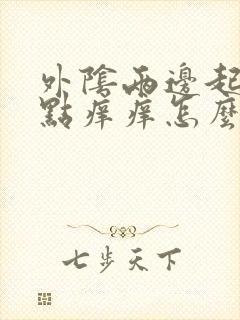 外陰兩邊起
點痒痒怎麼
七步天下